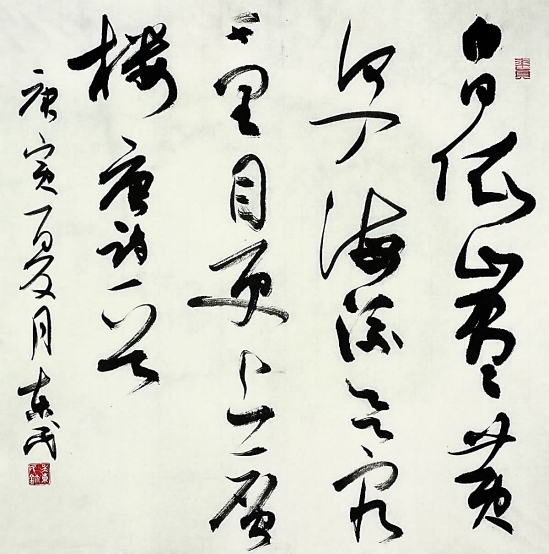 白日依山盡黃
河入海流欲窮
千里目更上一層
樓唐詩一首
庚寅夏月東民